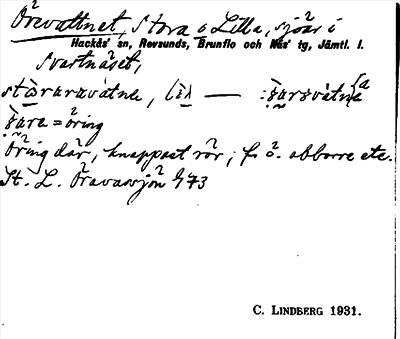 Örevattnet, Stora o Lilla, sjöar i
Hackås' sn, Revsunds, Brunflo och Näs' tg, Jämtl. l.
Svartnäset,
= öring
Öring där, knappast rör; f. ö. abborre etc.
St. L. Öravassjön 473
C. LINDBERG 1931.